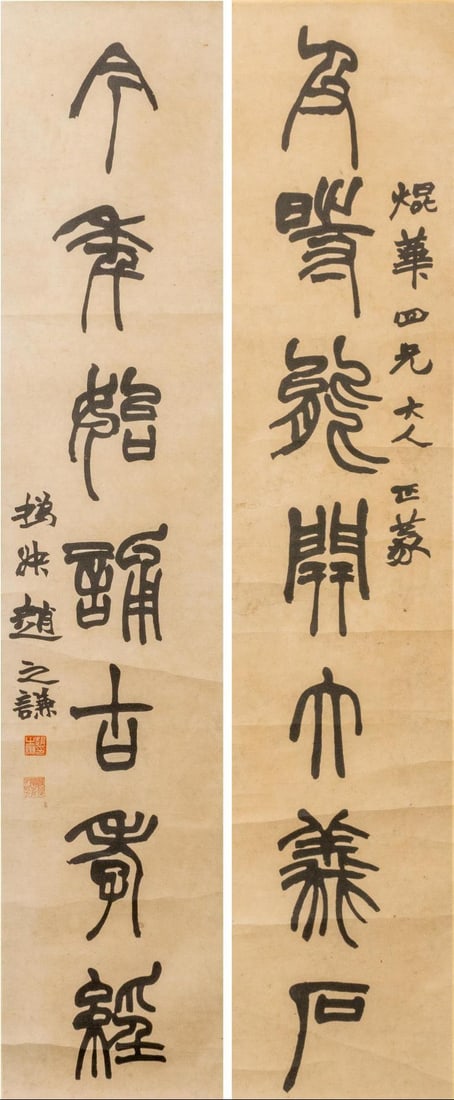 焜華四兄大人正篆
及時能開大義石
今年始誦古孝經
撝叔趙之謙